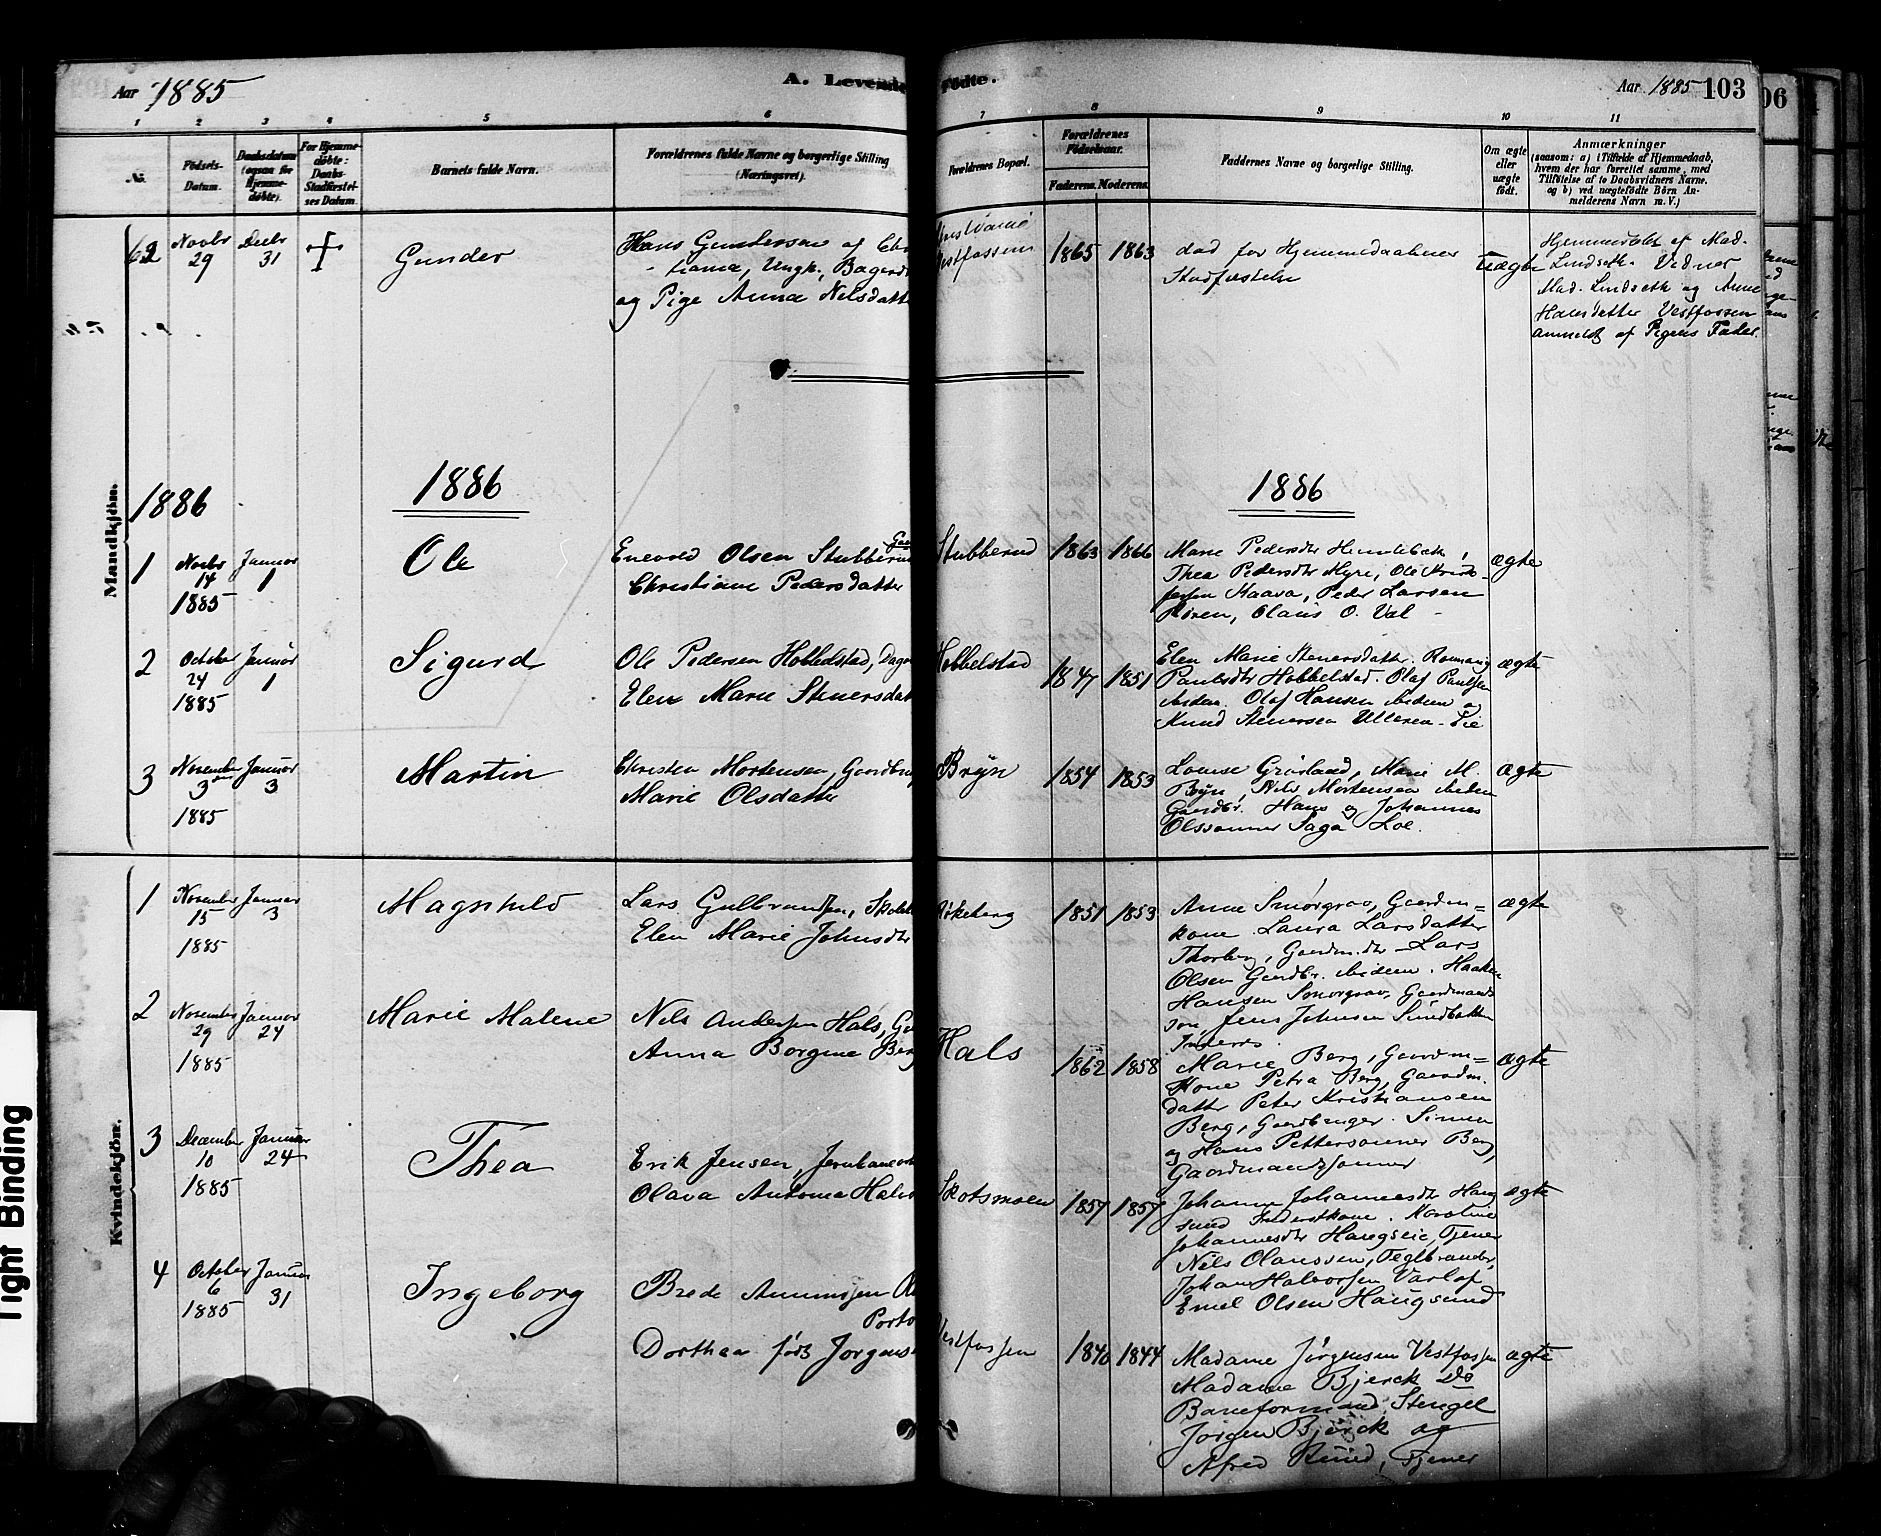 Aar 1885
A. Levende
Fødte.
Aar 1885 103
1 2 3 4 5 6 7 8 9 10 11
No.
Fødsels-
Datum.
Daabsdatum
(ogsaa for
Hjemme-
døbte).
For Hjemme-
døbte:
Daabs-
Stadfæstel-
ses Datum.
Barnets fulde Navn.
Forældrenes fulde Navne og borgerlige Stilling
(Næringsvei).
Forældrenes Bopæl.
Forældrenes
Fødselsaar.
Faderens. Moderens.
Faddernes Navne og borgerlige Stilling.
Om ægte
eller
uægte
født.
Anmærkninger
(saasom: a) i Tilfælde af Hjemmedaab,
hvem der har forrettet samme, med
Tilføielse af to Daabsvidners Navne.
og b) ved uægtefødte Børn An-
melderens Navn m. V.)
Mandkjøn.
62 Novbr
29
Decbr
31
Gunder
Hans Gundersen af Chr
tiania, Ungk., Bager
og Pige Anna Nilsdatt
Vestfossen
1865 1863
ved Hjemmedaabens
Stadfæstelse
uægte
Hjemmedøbt af Mad.
Lindseth. Vidner
Mad. Lindseth og Anne
Hansdatter Vestfossen
anmeldt af Pigens Fader.
1886
1886
1886
1 Novbr
14
1885
Januar
1
Ole
Enevold Olsen Stubberud
Christiane Pedersdatter
Stubberud
1863 1866
Marie Pedersdtr
Thea Pedersdtr Myre, Ole
Haava, Peder Larsen
Olaus O. Val
ægte
2 October
24
1885
Januar
1
Sigurd
Ole Pedersen Hobbelstad, Dag
Elen Marie Stenersdat
Hobbelstad
1847 1851
Elen Marie Stenersdatter.
Paulsdtr Hobbelstad. Olaf Paulsen
ibidem. Olaf Hansen ibidem og
Knud Stenersen Ulleren
ægte
3 November
3
1885
Januar
3
Martin
Christen Mortensen, Gaardbrug
Marie Olsdatter
Bryn
1854 1853
Louise Grøsland, Marie M.
Bryn, Nils Mortensen ibidem
Gaardbr. Hans og Johannes
Olssønner Saga Loe.
ægte
Kvindekjøn.
1 November
15
1885
Januar
3
Magnhild
Lars Gulbrandsen, Skole
Elen Marie Johnsdtr
Røkeberg
1851 1853
Anne Smørgrav, Gaardm=
kone Laura Larsdatter
Thorberg, Gaardm.dtr Lars
Olsen Gaardbr. ibidem. Haaken
Hansen Smørgrav, Gaardmands
søn, Jens Johnsen Sundbakken
ægte
2 November
29
1885
Januar
24
Marie Malene
Nils Andersen Hals, Ga
Anna Borgine Berg
Hals
1862 1858
Marie Berg, Gaardm=
kone Petra Berg, Gaardm.
datter Peter Kristiansen
Berg, Gaardbruger. Simen
og Hans Pettersønner Berg,
Gaardmandssønner
ægte
3 December
10
1885
Januar
24
Thea
Erik Jensen, Jernbanearb
Olava Antonia Halvo
Skotsmoen
1857 1857
Johanne Johannesdtr Haug
sund Inderstkone. Karoline
Johannesdtr Haugseie, Tjener
Nils Olaussen, Teglbrænder,
Johan Halvorsen Varlo
Emil Olsen Haugsund
ægte
4 October
6
1885
Januar
31
Ingeborg
Brede Amundsen
Dorthea født Jørgens
Vestfossen
1840 1844
Madame Jørgensen Vestfossen
Madame Bjerck Do
Baneformand Stengel
Jørgen Bjerck og
Alfred Rund, Tjener
ægte
06
Tight Binding